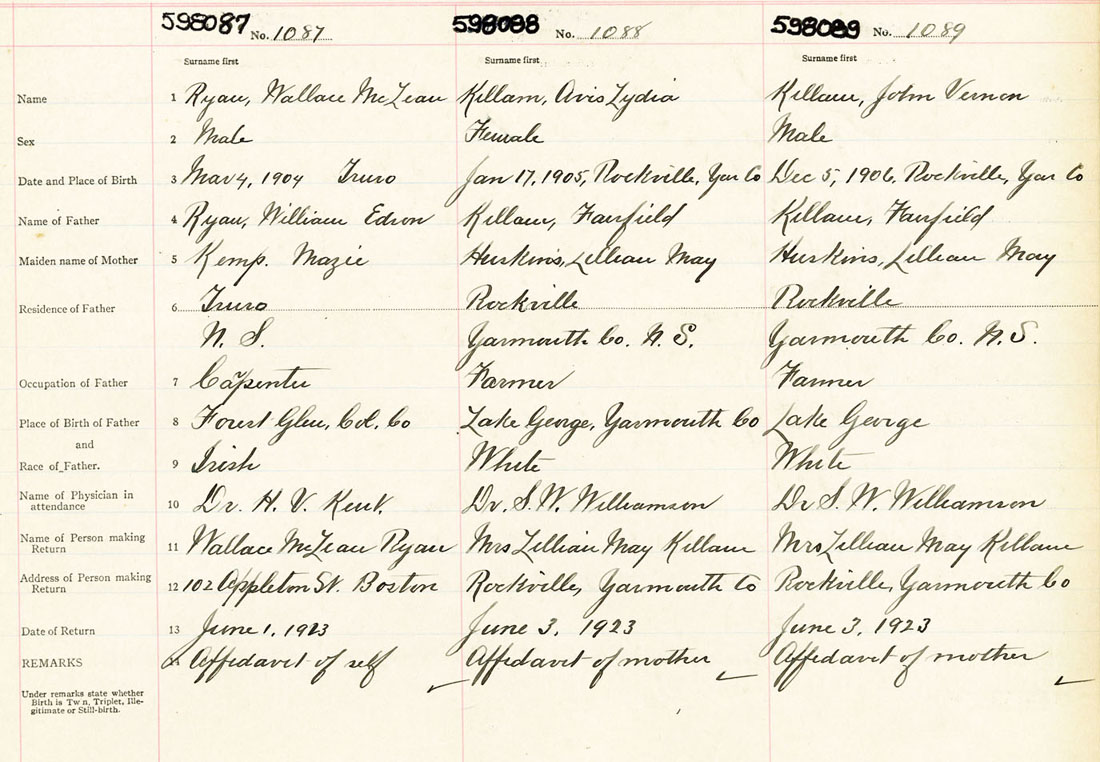 598087 No. 1087 598088 No. 1088 598089 No. 1089
Surname first Surname first Surname first
Name 1 Ryan, Wallace McLean Killam, Avis Lydia Killam, John Vernon
Sex 2 Male Female Male
Date and Place of Birth 3 Mar 4, 1904 Truro Jan 17, 1905, Rockville, Yar Co Dec 5, 1906, Rockville, Yar Co
Name of Father 4 Ryan, William Edson Killam, Fairfield Killam, Fairfield
Maiden name of Mother 5 Kemp. Mazie Huskins, Lillian May Huskins, Lillian May
Residence of Father 6 Truro Rockville Rockville
N. S. Yarmouth Co. N. S. Yarmouth Co. N. S.
Occupation of Father 7 Capenter Farmer Farmer
Place of Birth of Father 8 Forest Glen, Col. Co Lake George, Yarmouth Co Lake George
and
Race of Father. 9 Irish White White
Name of Physician in
attendance 10 Dr. H. V. Kent. Dr. S. W. Williamson Dr S. W. Williamson
Name of Person making
Return 11 Wallace McLean Ryan Mrs Lillian May Killam Mrs Lillian May Killam
Address of Person making
Return 12 102 Appleton St. Boston Rockville, Yarmouth Co Rockville, Yarmouth Co
Date of Return 13 June 1, 1923 June 3, 1923 June 3, 1923
REMARKS Affidavit of self Affidavit of mother Affidavit of mother
Under remarks state whether
Birth is Tw n, Triplet, Ille-
gitimate or Still-birth.